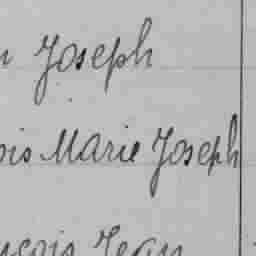 Joseph
ois Marie Joseph
nçois Jean